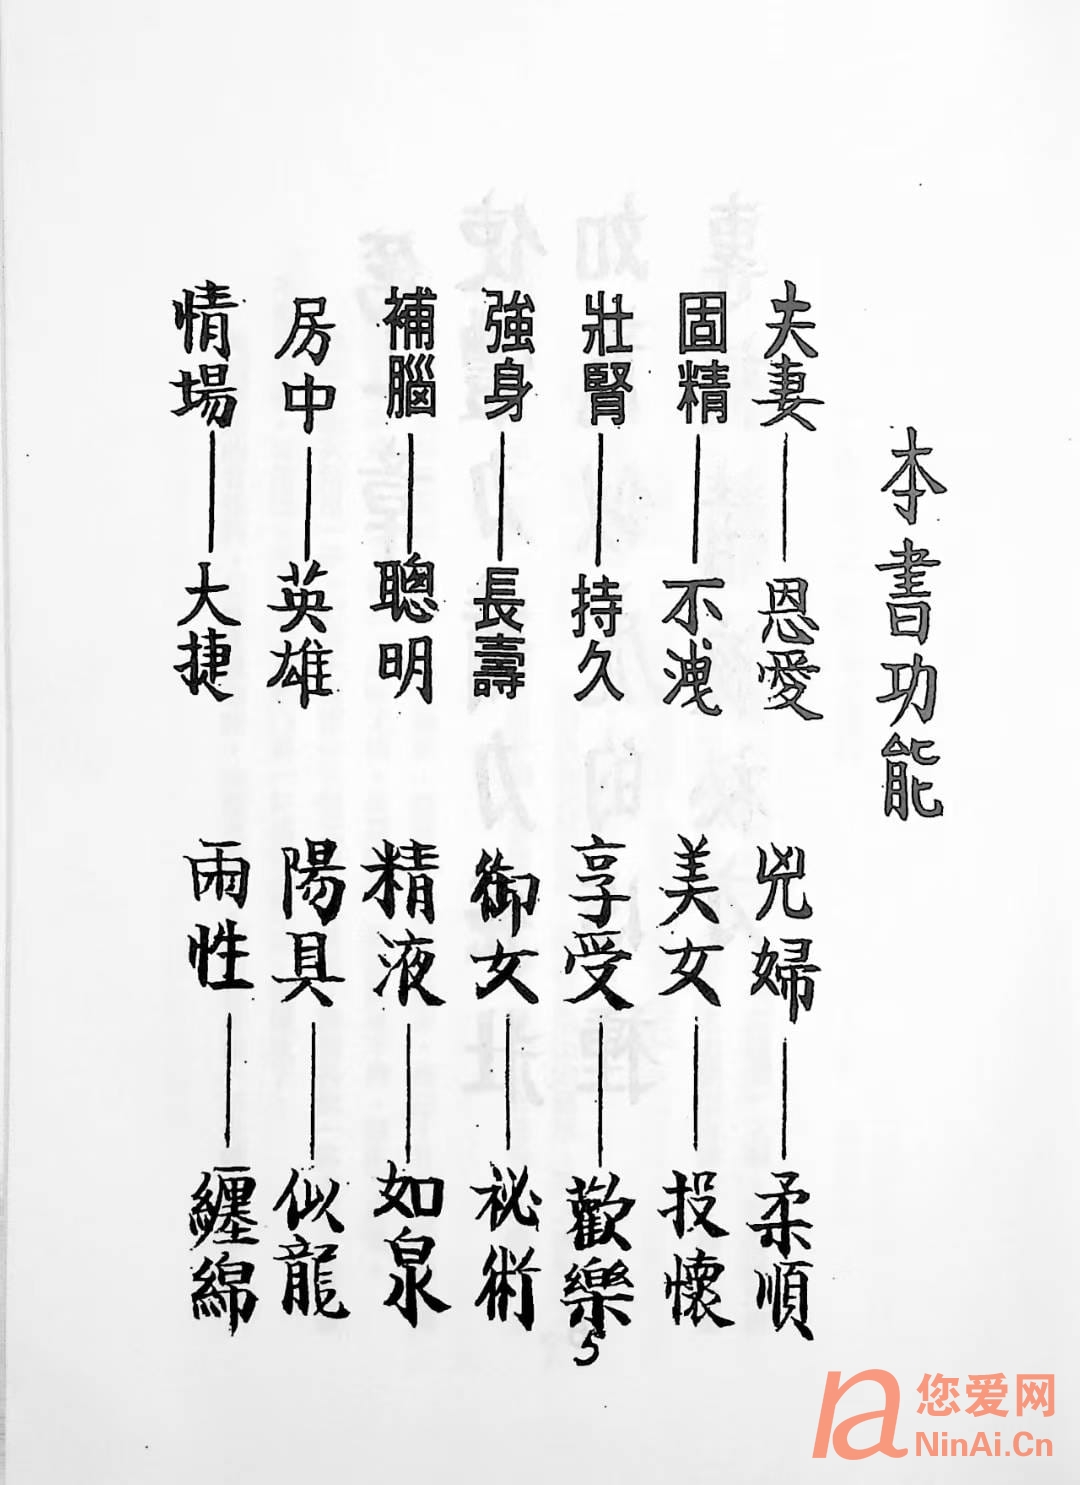 本書功能
夫妻——恩愛 兇婦——柔順
固精——不洩 美女——投懷
壯腎——持久 享受——歡樂
強身——長壽 御女——祕術
補腦——聰明 精液——如泉
房中——英雄 陽具——似龍
情場——大捷 兩性——纏綿
5
您爱网
NinAi.Cn